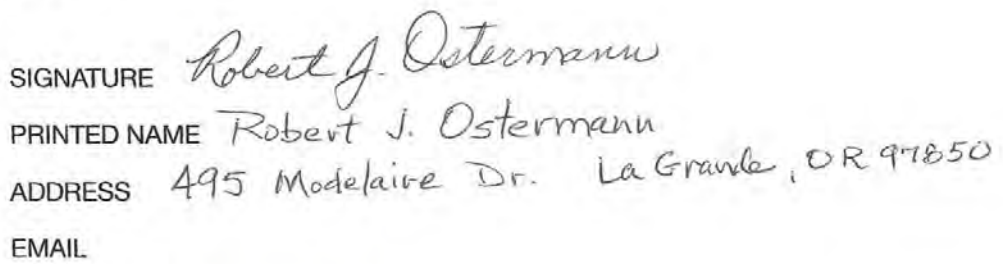 SIGNATURE Robert J. Ostermann
PRINTED NAME Robert J. Ostermann
ADDRESS 495 Modelaire Dr. La Grande, OR 97850
EMAIL